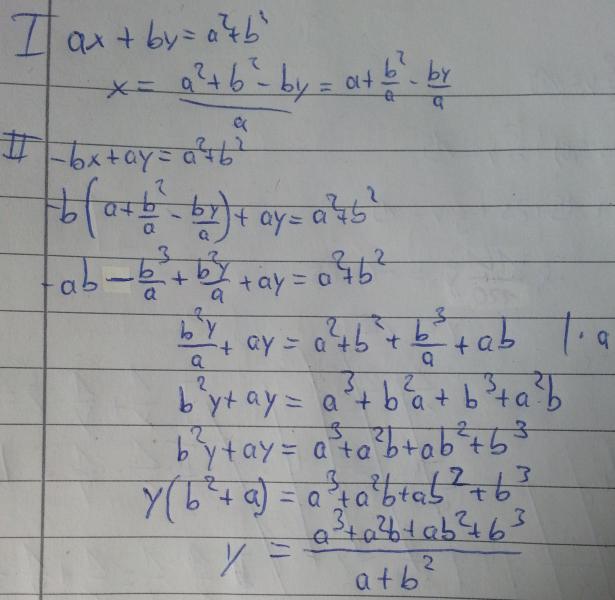 I ax + by = a²+b²
x = (a²+b²-by)/a = a + b²/a - by/a
II -bx+ay=a²+b²
-b(a+b²/a - by/a)+ay=a²+b²
-ab - b³/a + b²y/a + ay = a²+b²
b²y/a + ay = a²+b²+ b³/a + ab |·a
b²y+ay = a³+b²a+b³+a²b
b²y+ay = a³+a²b+ab²+b³
y(b²+a) = a³+a²b+ab²+b³
y = (a³+a²b+ab²+b³)/(a+b²)